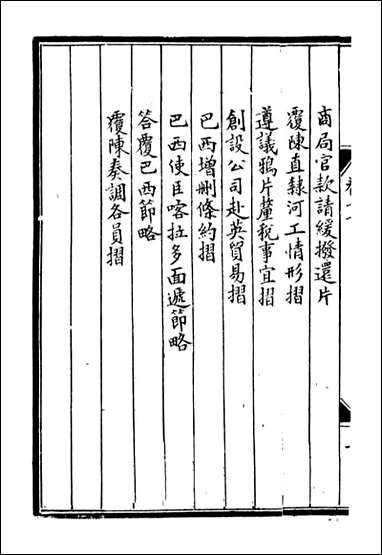 商局官款請緩撥還片
覆陳直隸河工情形摺
遵議鴉片釐稅事宜摺
創設公司赴英貿易摺
巴西增刪條約摺
巴西使臣喀拉多面遞節略
答覆巴西節略
覆陳奏調各員摺